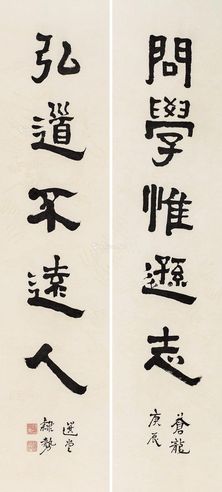 問學惟遜志
蒼龍
庚辰
弘道不遠人
選堂
隸勢